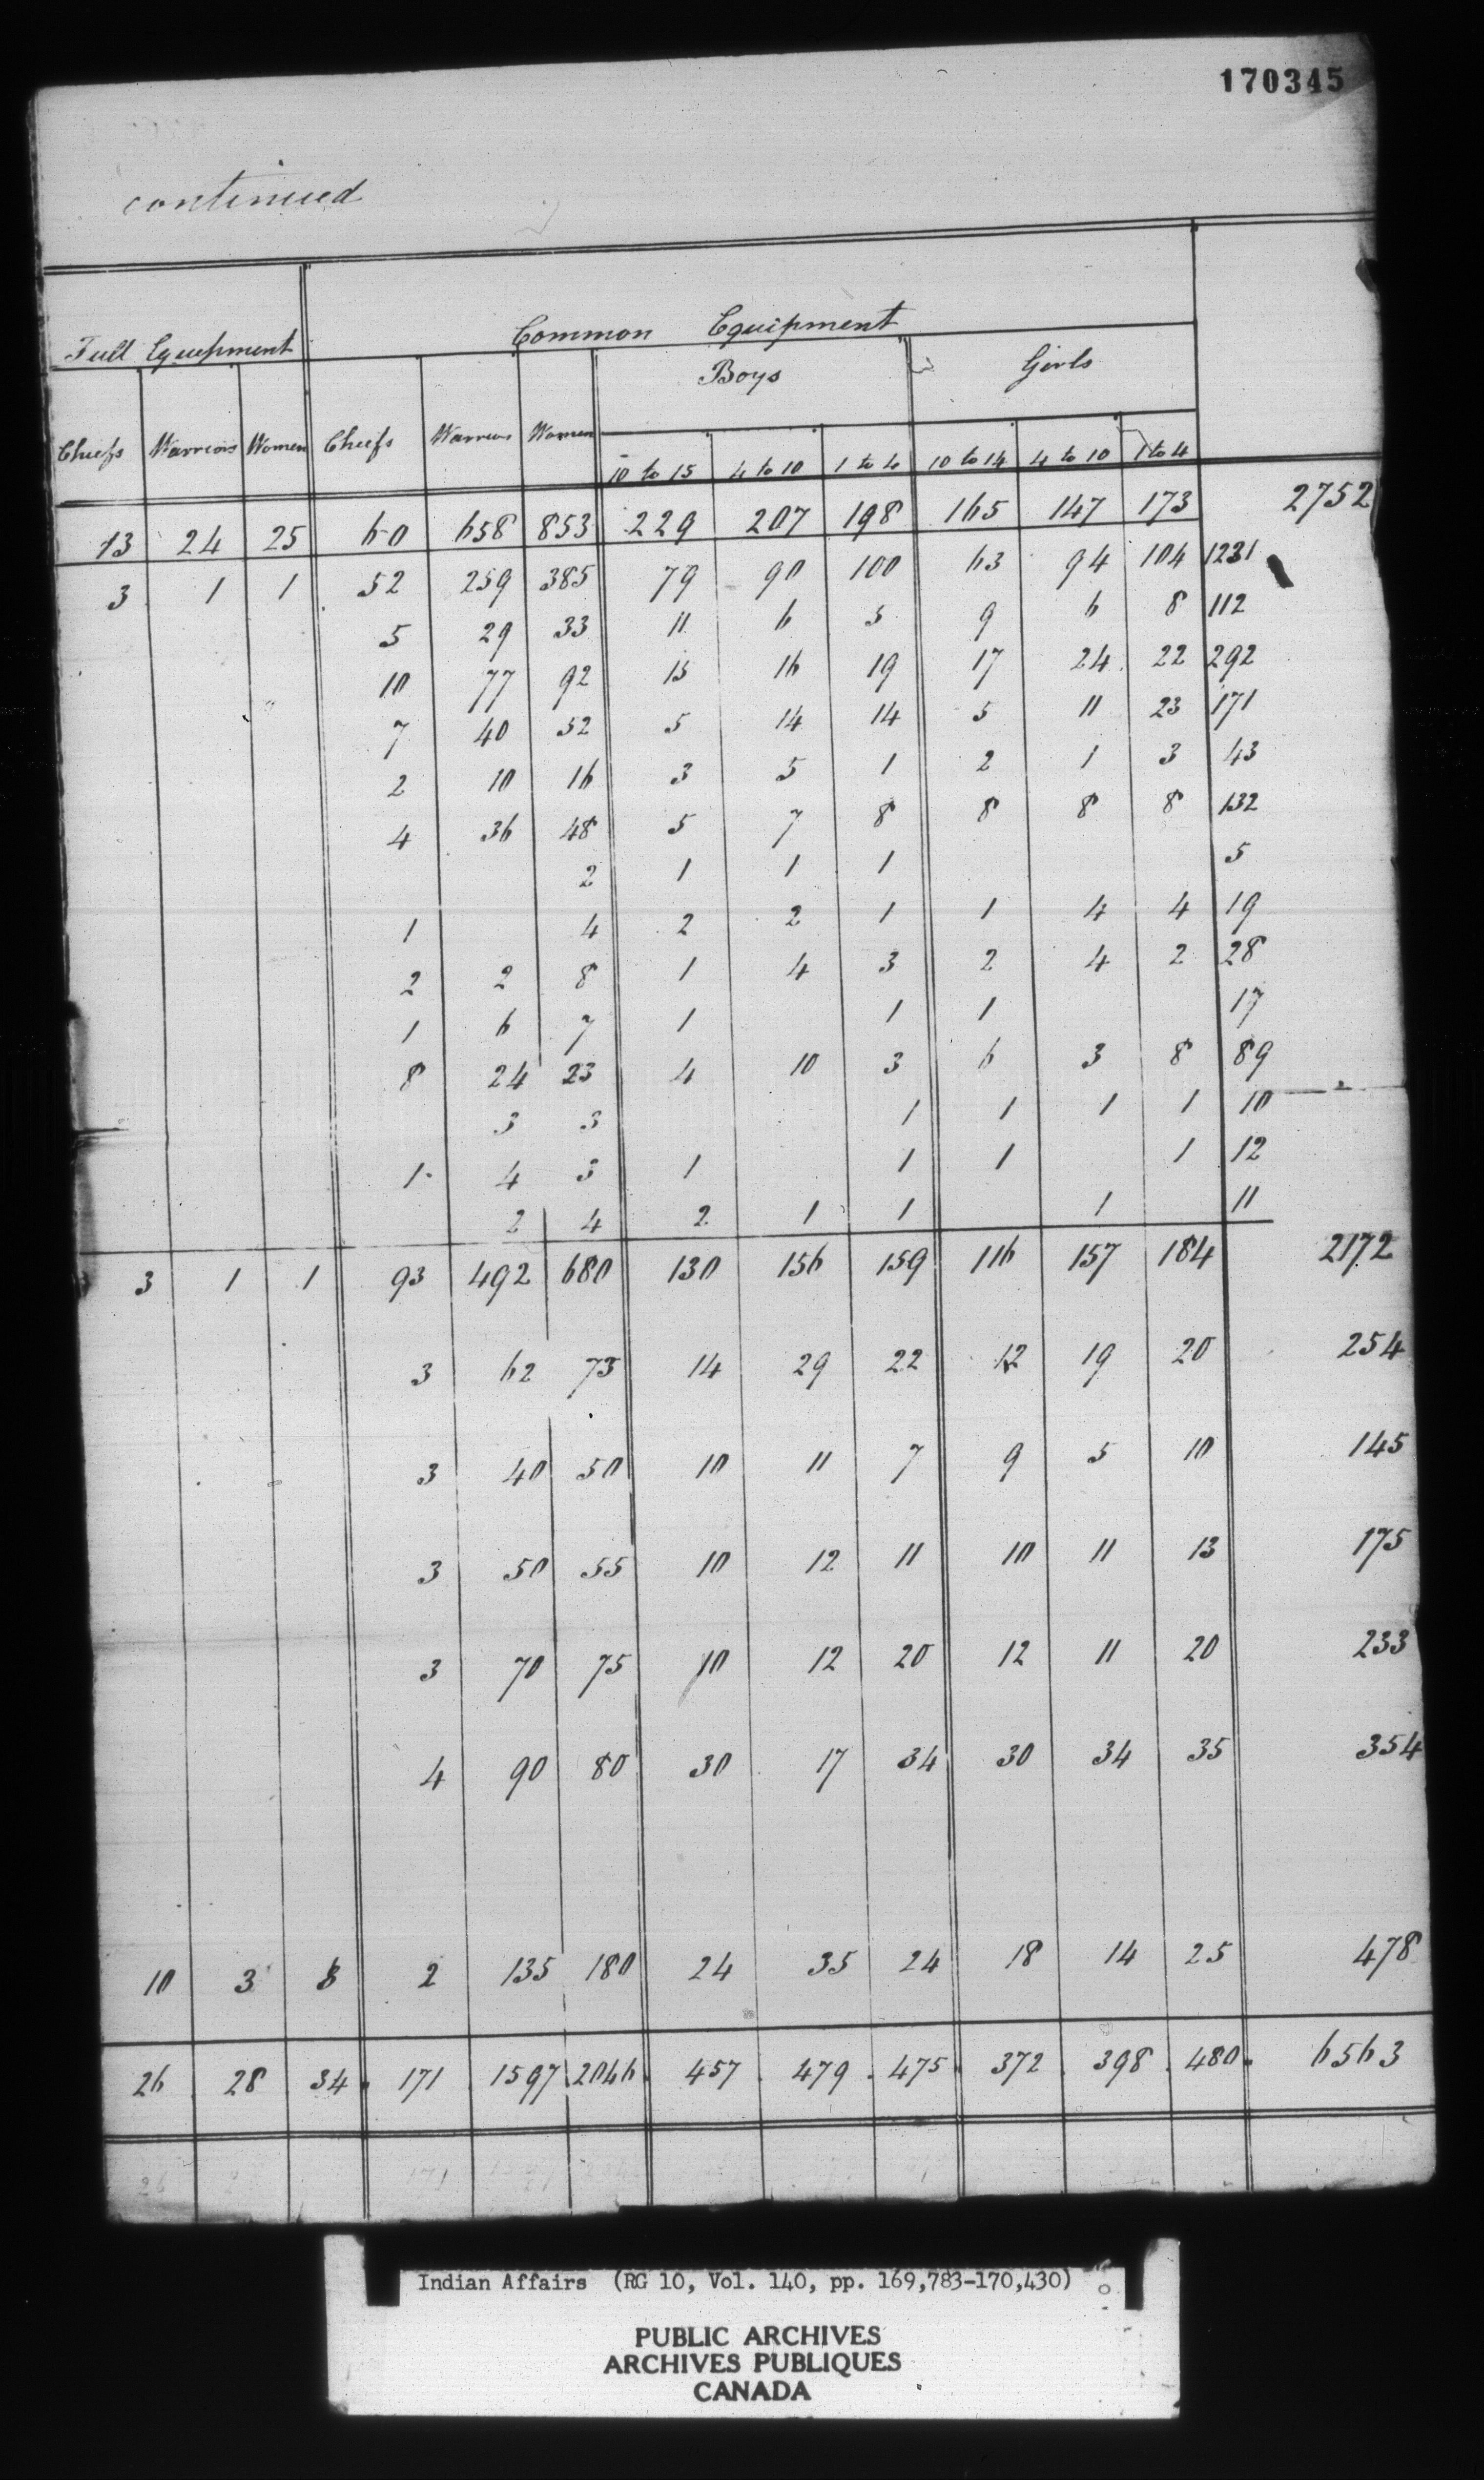 170345
continued
Full Equipment Common Equipment
Boys Girls
Chiefs Warriors Women Chiefs Warriors Women 10 to 15 4 to 10 1 to 4 10 to 14 4 to 10 1 to 4
13 24 25 60 658 853 229 207 198 165 147 173 2752
3 1 1 52 259 385 79 90 100 63 94 104 1231
5 29 33 11 6 5 9 6 8 112
10 77 92 15 16 19 17 24 22 292
7 40 52 5 14 14 5 11 23 171
2 10 16 3 5 1 2 1 3 43
4 36 48 5 7 8 8 8 8 132
2 1 1 1 5
1 4 2 2 1 1 4 4 19
2 2 8 1 4 3 2 4 2 28
1 6 7 1 1 1 17
8 24 23 4 10 3 6 3 8 89
3 3 1 1 1 1 10
1 4 3 1 1 1 1 12
2 4 2 1 1 1 11
3 1 1 93 492 680 130 156 159 116 157 184 2172
3 62 73 14 29 22 12 19 20 254
3 40 50 10 11 7 9 5 10 145
3 50 55 10 12 11 10 11 13 175
3 70 75 10 12 20 12 11 20 233
4 90 80 30 17 34 30 34 35 354
10 3 8 2 135 180 24 35 24 18 14 25 478
26 28 34 171 1597 2046 457 479 475 372 398 480 6563
Indian Affairs (RG 10, Vol. 140, pp. 169,783-170,430)
PUBLIC ARCHIVES
ARCHIVES PUBLIQUES
CANADA